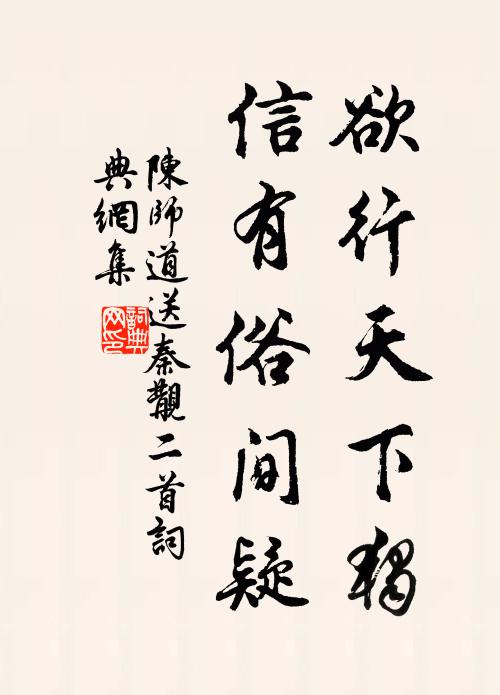 欲行天下獨
信有俗間疑
陳師道送秦觀二首詞
典網集
詞典
网印